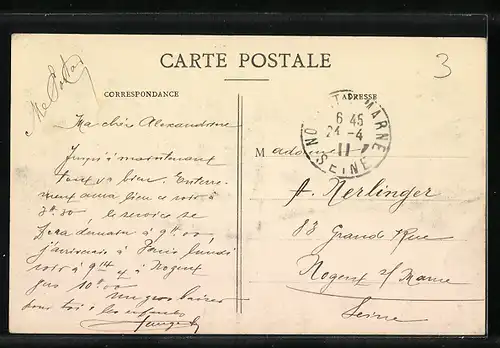 CARTE POSTALE
3
CORRESPONDANCE
ADRESSE
Ma chère Alexandrine
Jusqu'à maintenant
tout va bien. Enterre-
ment aura lieu ce soir à
3h.30, le service se
fera demain à 9h00,
j'arriverai à Paris lundi
soir à 9h14 et à Nogent
vers 10h.00
un gros baiser
pour toi & les enfants
MARNE
6 45
24 - 4
11
SEINE
Madame
A. Nerlinger
83 Grande Rue
Nogent s/ Marne
Seine